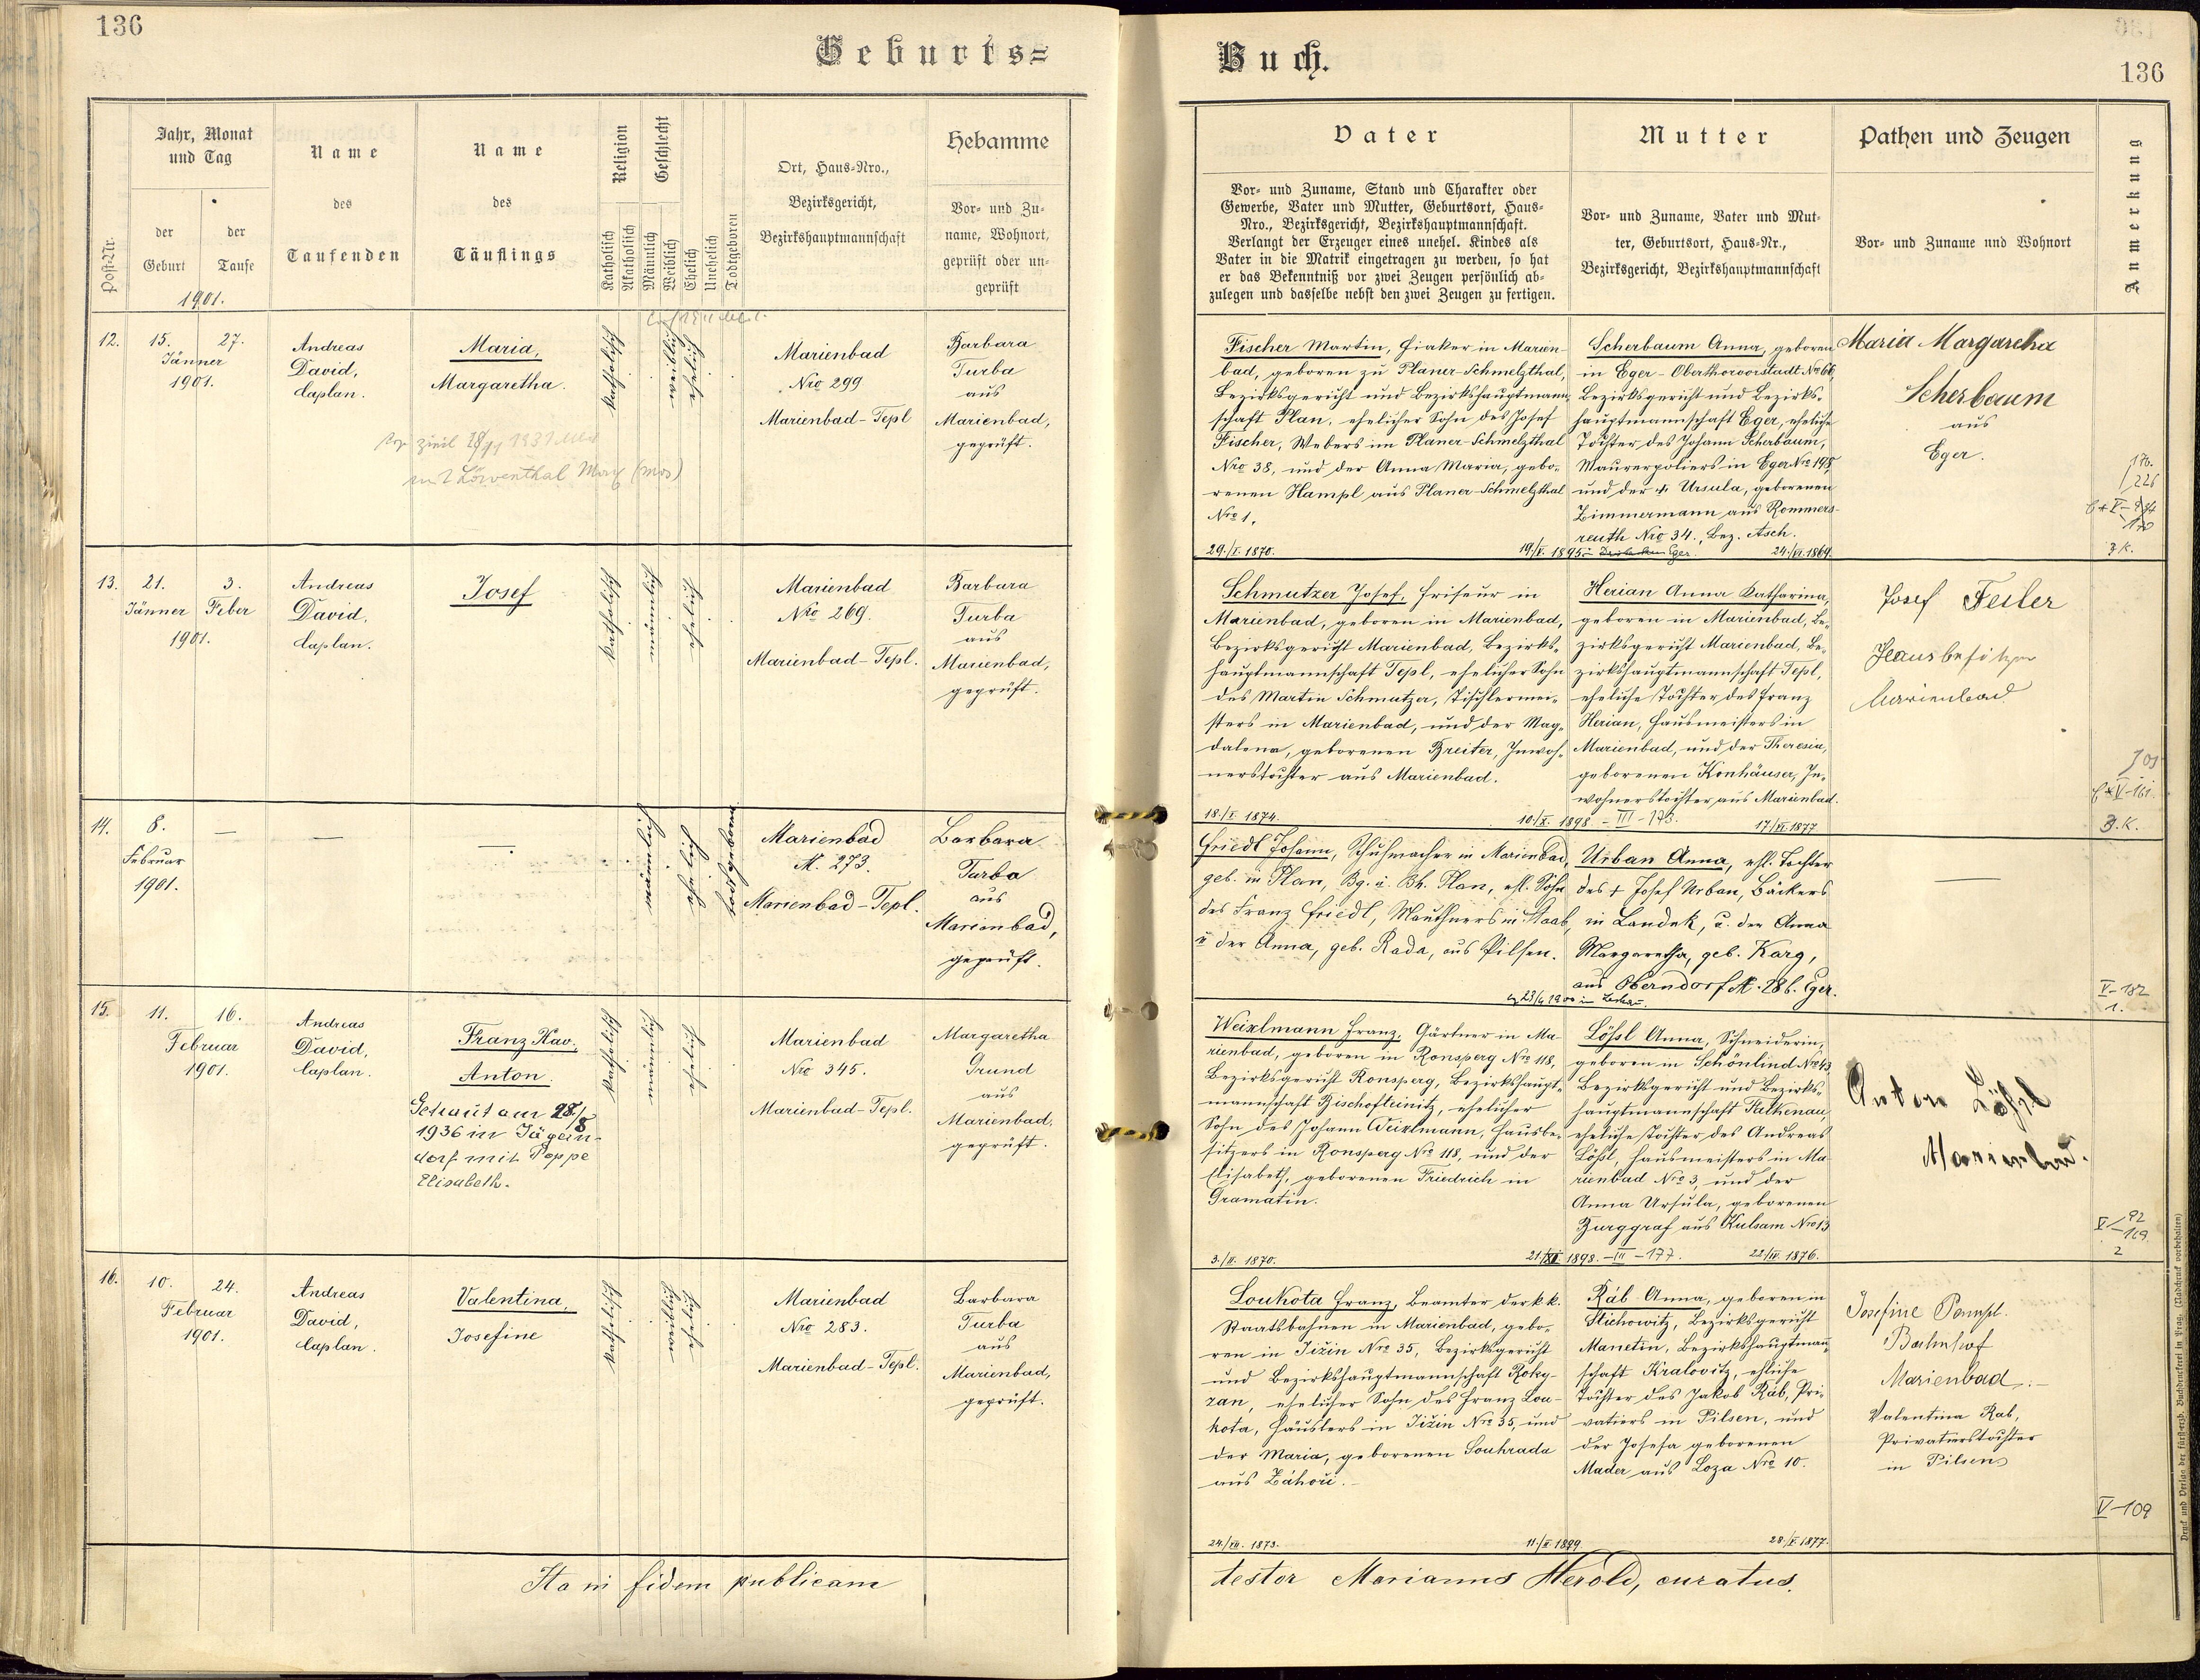 136
Geburts=
Jahr, Monat
und Tag
der
Geburt
der
Taufe
1901.
Post-Nr.
Name
des
Taufenden
Name
des
Täuflings
Religion
Katholisch
Akatholisch
Geschlecht
Männlich
Weiblich
Ehelich
Unehelich
Todtgeboren
Ort, Haus-Nro.,
Bezirksgericht,
Bezirkshauptmannschaft
Hebamme
Vor- und Zu-
name, Wohnort,
geprüft oder un-
geprüft
12.
15.
27.
Jänner
1901.
Andreas
David,
Caplan.
Maria,
Margaretha.
zivil
1931
mit Löwenthal Max (mos)
katholisch
weiblich
ehelich
Marienbad
Nro 299
Marienbad-Tepl
Barbara
Turba
aus
Marienbad,
geprüft.
13.
21.
3.
Jänner
Feber
1901.
Andreas
David,
Caplan.
Josef
katholisch
männlich
ehelich
Marienbad
Nro 269.
Marienbad-Tepl.
Barbara
Turba
aus
Marienbad,
geprüft.
14.
8.
Februar
1901.
männlich
ehelich
todtgeboren
Marienbad
N. 273.
Marienbad-Tepl.
Barbara
Turba
aus
Marienbad,
geprüft.
15.
11.
16.
Februar
1901.
Andreas
David,
Caplan.
Franz Xav.,
Anton.
Getraut am 28./8
1936 in Jägern-
dorf mit Poppe
Elisabeth.
katholisch
männlich
ehelich
Marienbad
Nro 345.
Marienbad-Tepl.
Margaretha
Grund
aus
Marienbad,
geprüft.
16.
10.
24.
Februar
1901.
Andreas
David,
Caplan.
Valentina,
Josefine
katholisch
weiblich
ehelich
Marienbad
Nro 283.
Marienbad-Tepl.
Barbara
Turba
aus
Marienbad,
geprüft.
Ita in fidem publicam
Buch.
136
Vater
Vor- und Zuname, Stand und Charakter oder
Gewerbe, Vater und Mutter, Geburtsort, Haus-
Nro., Bezirksgericht, Bezirkshauptmannschaft.
Verlangt der Erzeuger eines unehel. Kindes als
Vater in die Matrik eingetragen zu werden, so hat
er das Bekenntniß vor zwei Zeugen persönlich ab-
zulegen und dasselbe nebst den zwei Zeugen zu fertigen.
Mutter
Vor- und Zuname, Vater und Mut-
ter, Geburtsort, Haus-Nr.,
Bezirksgericht, Bezirkshauptmannschaft
Pathen und Zeugen
Vor- und Zuname und Wohnort
Anmerkung
Fischer Martin, Fiaker in Marien-
bad, geboren zu Planer-Schmelzthal,
Bezirksgericht und Bezirkshauptmann-
schaft Plan, ehelicher Sohn des Josef
Fischer, Webers im Planer-Schmelzthal
Nro 38, und der Anna Maria, gebo-
renen Hampl aus Planer-Schmelzthal
Nro 1.
29./I. 1870.
19/V. 1895
Scherbaum Anna, geboren
in Eger-Oberthorvorstadt Nro 66,
Bezirksgericht und Bezirks-
hauptmannschaft Eger, eheliche
Tochter des Johann Scherbaum,
Maurerpoliers in Eger Nro 198,
und der † Ursula, geborenen
Zimmermann aus Rommers-
reuth Nro 34., Bez. Asch.
Eger.
24./VI. 1869.
Maria Margaretha
Scherbaum
aus
Eger.
176.
226
Z.K.
Schmutzer Josef, Friseur in
Marienbad, geboren in Marienbad,
Bezirksgericht Marienbad, Bezirks-
hauptmannschaft Tepl, ehelicher Sohn
des Martin Schmutzer, Tischlermei-
sters in Marienbad, und der Mag-
dalena, geborenen Breiter, Inwoh-
nerstochter aus Marienbad.
18./X. 1874.
10./X. 1898. - III - 173.
Herian Anna Katharina,
geboren in Marienbad, Be-
zirksgericht Marienbad, Be-
zirkshauptmannschaft Tepl,
eheliche Tochter des Franz
Herian, Hausmeisters in
Marienbad, und der Theresia,
geborenen Konhäuser, In-
wohnerstochter aus Marienbad.
17./VI. 1877.
Josef Feiler
Hausbesitzer
Marienbad
Z.K.
Friedl Johann, Schuhmacher in Marienbad,
geb. in Plan, Bg. u. Bh. Plan, ehl. Sohn
des Franz Friedl, Mauthners in Staab,
u der Anna, geb. Rada, aus Pilsen.
Urban Anna, ehl. Tochter
des † Josef Urban, Bäckers
in Landek, u. der Anna
Margaretha, geb. Karg,
aus Oberndorf N. 28 b. Eger.
V-182
1.
Weixlmann Franz, Gärtner in Ma-
rienbad, geboren in Ronsperg Nro 118,
Bezirksgericht Ronsperg, Bezirkshaupt-
mannschaft Bischofteinitz, ehelicher
Sohn des Johann Weixlmann, Hausbe-
sitzers in Ronsperg Nro 118, und der
Elisabeth, geborenen Friedrich in
Gramatin.
3./II. 1870.
21./XI. 1898. - III - 177.
Lößl Anna, Schneiderin,
geboren in Schönlind Nro 43
Bezirksgericht und Bezirks-
hauptmannschaft Falkenau,
eheliche Tochter des Andreas
Lößl, Hausmeisters in Ma-
rienbad Nro 3, und der
Anna Ursula, geborenen
Burggraf aus Kulsam Nro 13
22/IV. 1876.
Anton Lößl
Marienbad.
92
V-169.
2
Loukota Franz, Beamter der k.k.
Staatsbahnen in Marienbad, gebo-
ren in Jižin Nro 35, Bezirksgericht
und Bezirkshauptmannschaft Roky-
zan, ehelicher Sohn des Franz Lou-
kota, Häuslers in Jižin Nro 35, und
der Maria, geborenen Souhrada
aus Záhoři.
24./VII. 1873.
11./X 1899
Ráb Anna, geboren in
Stichowitz, Bezirksgericht
Manetin, Bezirkshauptmann-
schaft Kralovitz, eheliche
Tochter des Jakob Ráb, Pri-
vatiers in Pilsen, und
der Josefa geborenen
Mader aus Loza Nro 10.
28./V. 1877.
Josefine Pompl.
Bahnhof
Marienbad.
Valentina Rab,
Privatierstochter
in Pilsen
V-109
testor Marianus Herold, curatus.
Druck und Verlag der fürsterzb. Buchdruckerei in Prag. (Nachdruck vorbehalten)